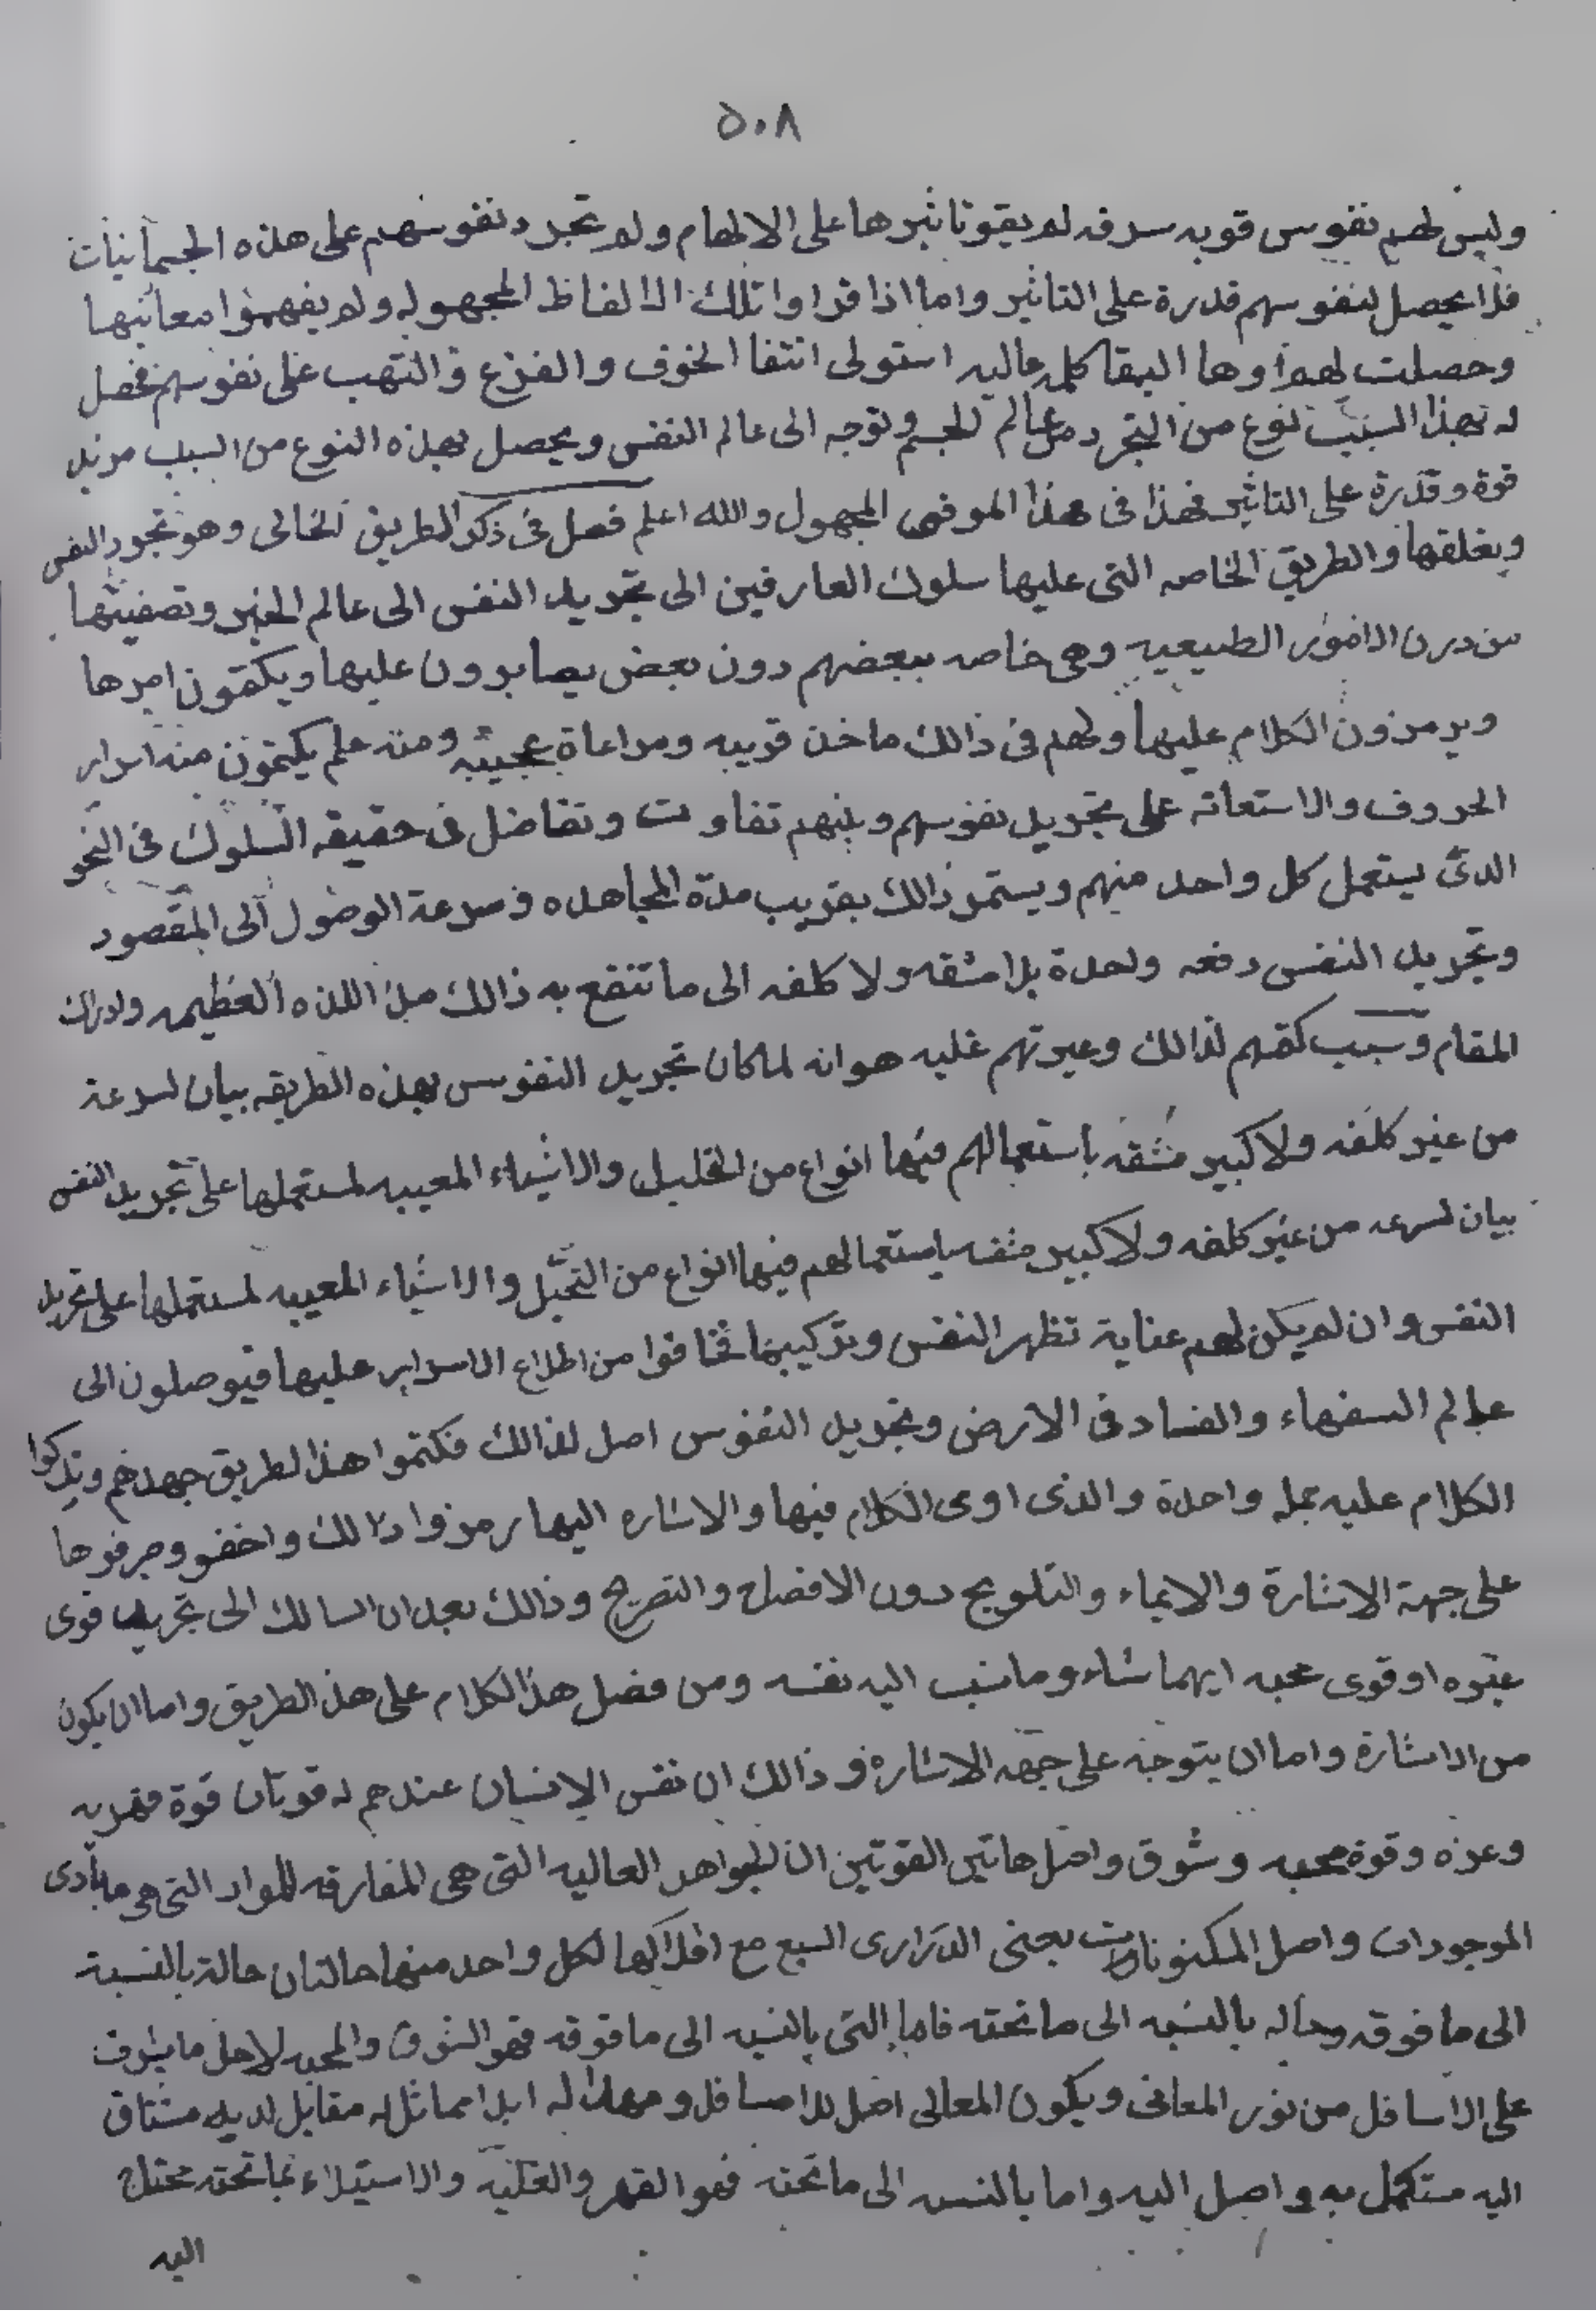 ٥٠٨
وليس لهم نفوس قويه لم يقو تاثيرها على الالهام ولم تتجرد نفوسهم على هذه الجسمانيات
فلا يحصل لنفوسهم قدرة على التاثير واما اذا قراوا تلك الالفاظ المجهوله ولم يفهموا معانيها
وحصلت لهم استولى الخوف والفزع والتهب على نفوسهم فحصل
له بهذا السبب نوع من التجرد من عالم الجسم وتوجه الى عالم النفس ويحصل بهذه النوع من السبب مزيد
قوة وقدرة على التاثير فهذا فى هذا المجهول والله اعلم فصل فى ذكر الطريق الخالى وهو تجرد النفس
والطريق الخاصه التى عليها سلوك العارفين الى تجريد النفس الى عالم الخير وتصفيتها
من درن الامور الطبيعيه وهى خاصه ببعضهم دون بعض يصابرون عليها ويكتمون امرها
ويرمزون الكلام عليها ولهم فى ذالك ماخذ قريبه ومراعاة عجيبه ومنه علم يكتمون منه اسرار
الحروف والاستعانه على تجريد نفوسهم وبينهم تفاوت وتفاضل فى حقيقه السلوك فى النحو
الدى يستعمل كل واحد منهم ويستمر ذالك بقريب مدة المجاهده وسرعة الوصول الى المقصود
وتجريد النفس دفعه واحدة بلا مشقه ولا كلفه الى ما تنتفع به ذالك من اللذه العظيمه وادراك
المقام وسبب كتمهم لذالك وغيرتهم عليه هو انه لما كان تجريد النفوس بهذه الطريقه بيان لسرعة
من غير كلفه ولا كبير مشقه باستعمالهم فيها انواع من التحليل والاشياء المعيبه لمستعملها على تجريد النفس
بيان لسرعه من غير كلفه ولا كبير مشقه باستعمالهم فيها انواع من التحيل والاشياء المعيبه لمستعملها على تجريد
النفس وان لم يكن لهم عناية تظهر النفس وتزكيبها فخافوا من اطلاع الاسرار عليها فيوصلون الى
عالم السفهاء والفساد فى الارض وتجريد النفوس اصل لذالك فكتموا هذا الطريق جهدهم وتركوا
الكلام عليه جمله واحدة والذى اوى الكلام فيها والاشاره اليها رمزوا ذالك واخفو وحرفوها
على جهة الاشارة والايماء والتلويح دون الافصاح والتصريح وذالك بعد ان السالك الى تجريد قوى
او قوى محبه ايهما شاء وما نسب اليه نفسه ومن فضل هذا الكلام على هذ الطريق واما ان يكون
من الاشارة واما ان يتوجه على جهه الاشاره وذالك ان نفس الانسان عندهم له قوتان قوة قهريه
وعزه وقوة محبه وشوق واصل هاتين القوتين ان الجواهر العاليه التى هى المفارقه للمواد التى هى مبادى
الموجودات واصل المكنونات يعنى الدرارى السبع مع افلاكها لكل واحد منها حالتان حالة بالنسبة
الى ما فوقه وحاله بالنسبه الى ما تحته فاما التى بالنسبه الى ما فوقه فهو الشوق والمحبه لاجل ما
على الاسافل من نور المعانى ويكون المعالى اصل للاسافل له ابدا مماثل له مقابل لديه مشتاق
اليه مستكمل به واصل اليه واما بالنسبه الى ما تحته فهو القهر والغلبه والاستيلاء بما تحته محتاج
اليه